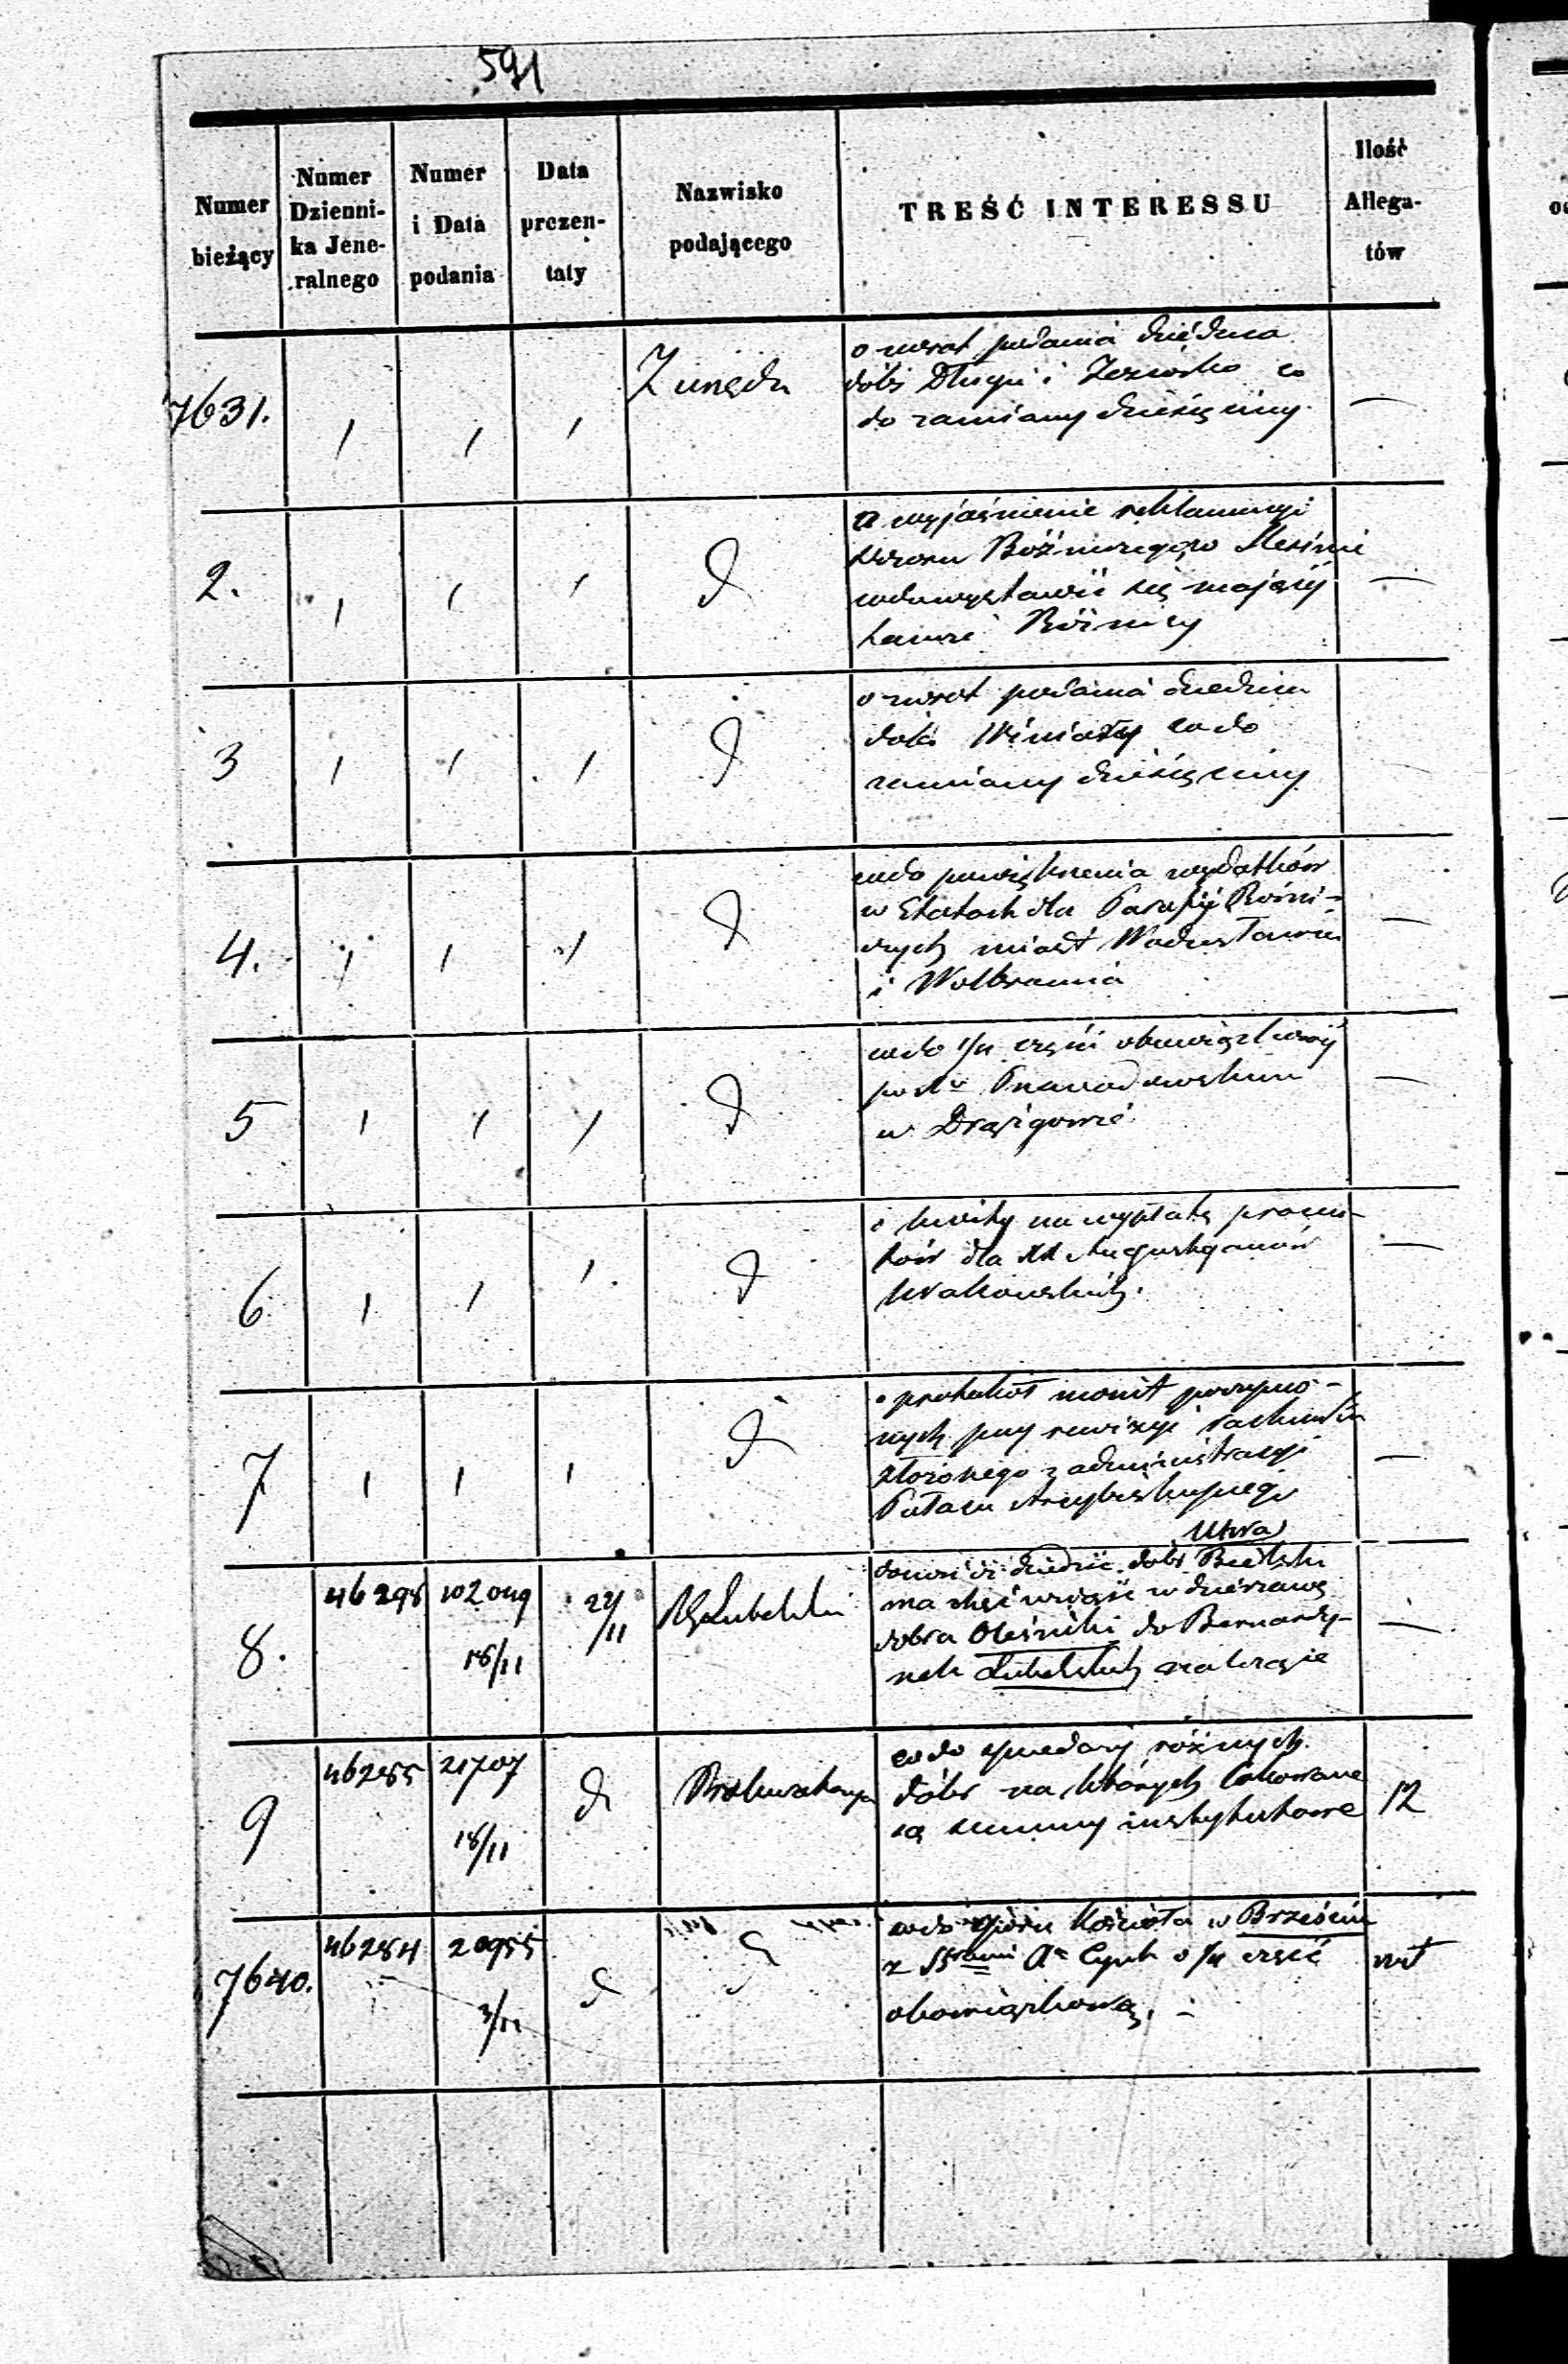 591
Numer bieżący
Numer Dzienni-ka Jene-ralnego
Numer i Data podania
Data prezen-taty
Nazwisko podającego
TREŚĆ INTERESSU
Ilość Allega-tów
7631.
Z urzędu
o zwrot podania dziedzica
dóbr Długie i co
do zamiany dziesięciny
—
2.
d
o wyjaśnienie reklamacyi
Dozoru Bóźniczego w
codo wystawić się mającej
Bóżnicy
—
3
d
o zwrot podania dziedzica
dóbr Winiary co do
zamiany dziesięciny
—
4.
d
codo powiększenia wydatków
w Etatach dla Parafij Bóżni-
czych miast Wodzisławia
i Wolbromia
—
5
d
codo 1/4 części obowiązkowej
w Drążgowie
—
6
d
o kwity na wypłatę procen-
tów dla XX Augustyanów
Krakowskich.
—
7
d
o protokół monit poczynio-
nych przy rewizyi rachunku
złożonego z administracyi
Pałacu Arcybiskupiego
—
8.
46298
18/11
22/11
Rz Lubelski
Utra
donosi iż dziedzic dóbr
ma chęć wziąść w dzierżawę
dobra Oleśniki do Bernardy-
nek Lubelskich należące
—
9
46285
21707
18/11
d
Prokuratorya
codo sprzedaży różnych
dóbr na których lokowane
są summy instytutowe
12
7640.
46284
20955
3/11
d
d
codo sporu Kościoła w Brześciu
z o 1/4 część
obowiązkową. –